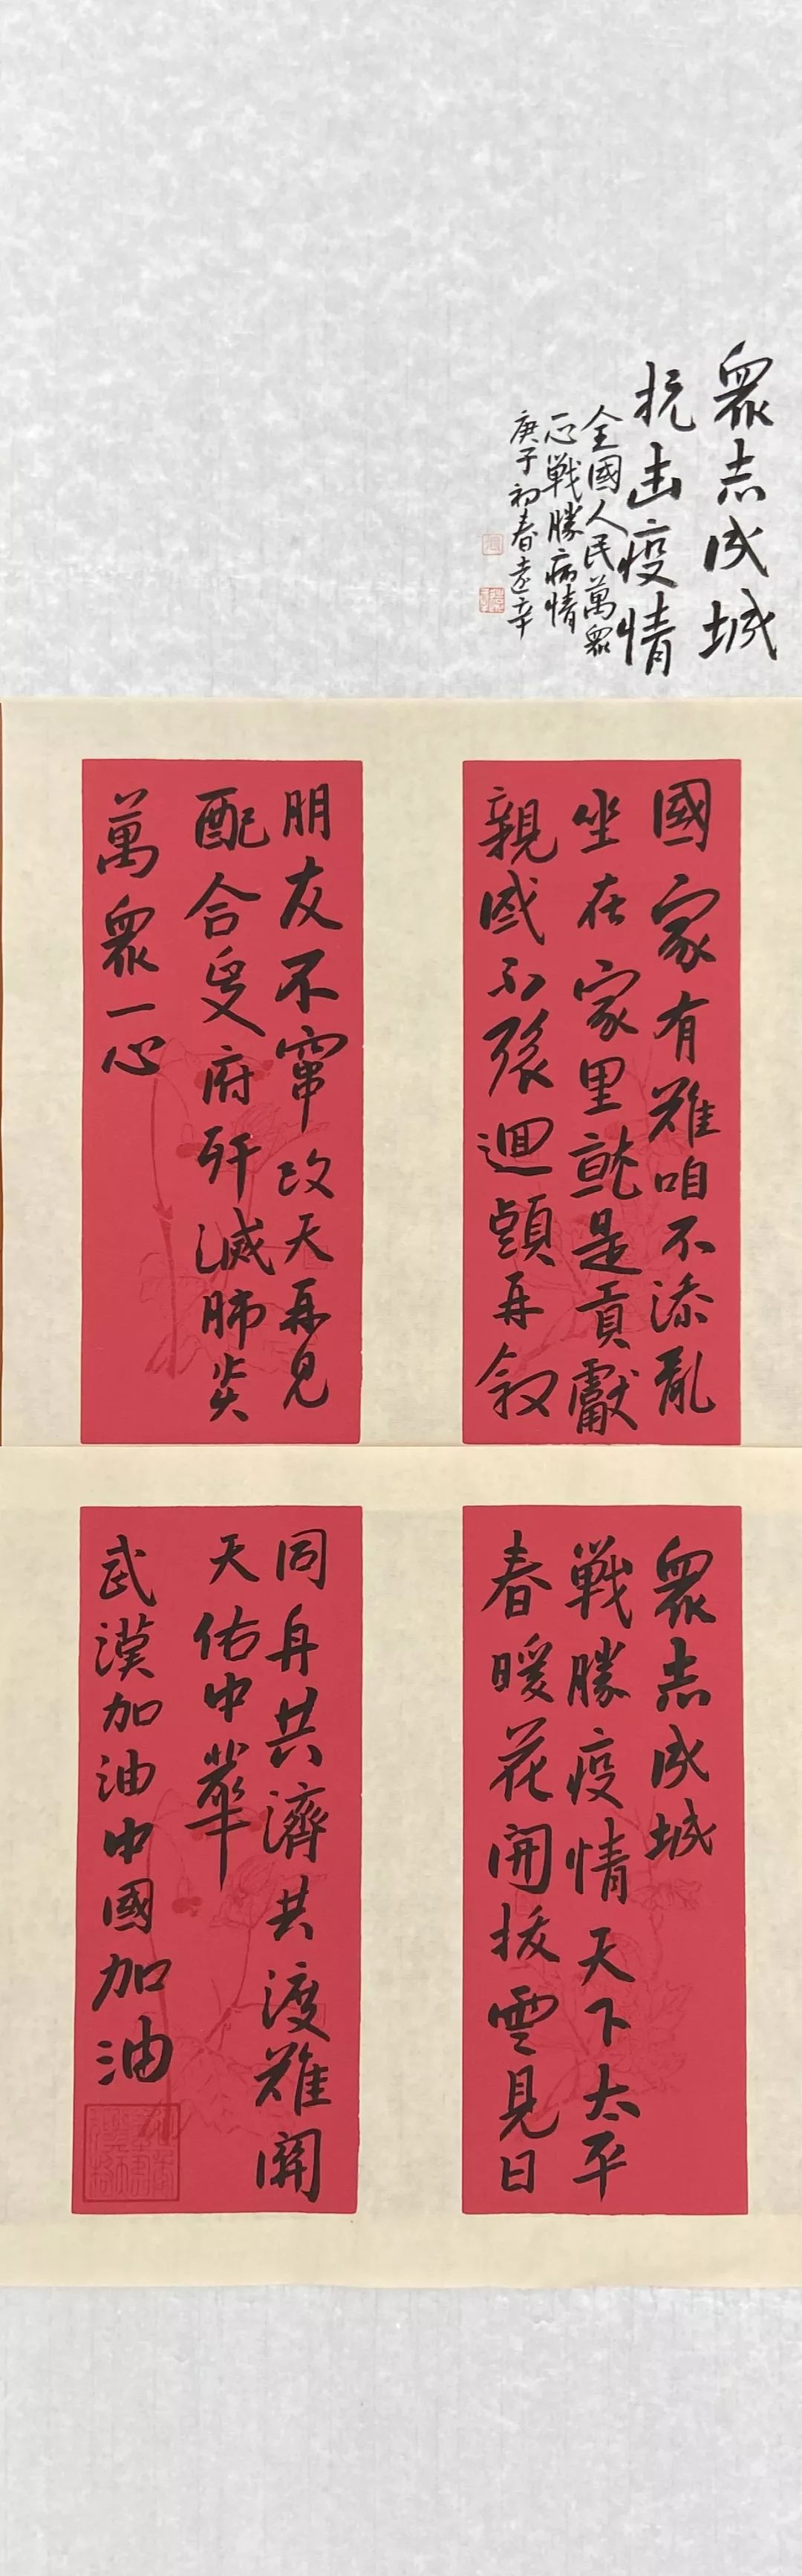 眾志成城
抗击疫情
全國人民萬眾
一心戰勝病情
庚子初春
國家有難咱不添亂
坐在家里就是貢獻
親戚不迴頭再叙
朋友不窜改天再見
配合政府歼滅肺炎
萬眾一心
眾志成城
戰勝疫情天下太平
春暖花開拨雲見日
同舟共濟共渡難關
天佑中華
武漢加油中國加油